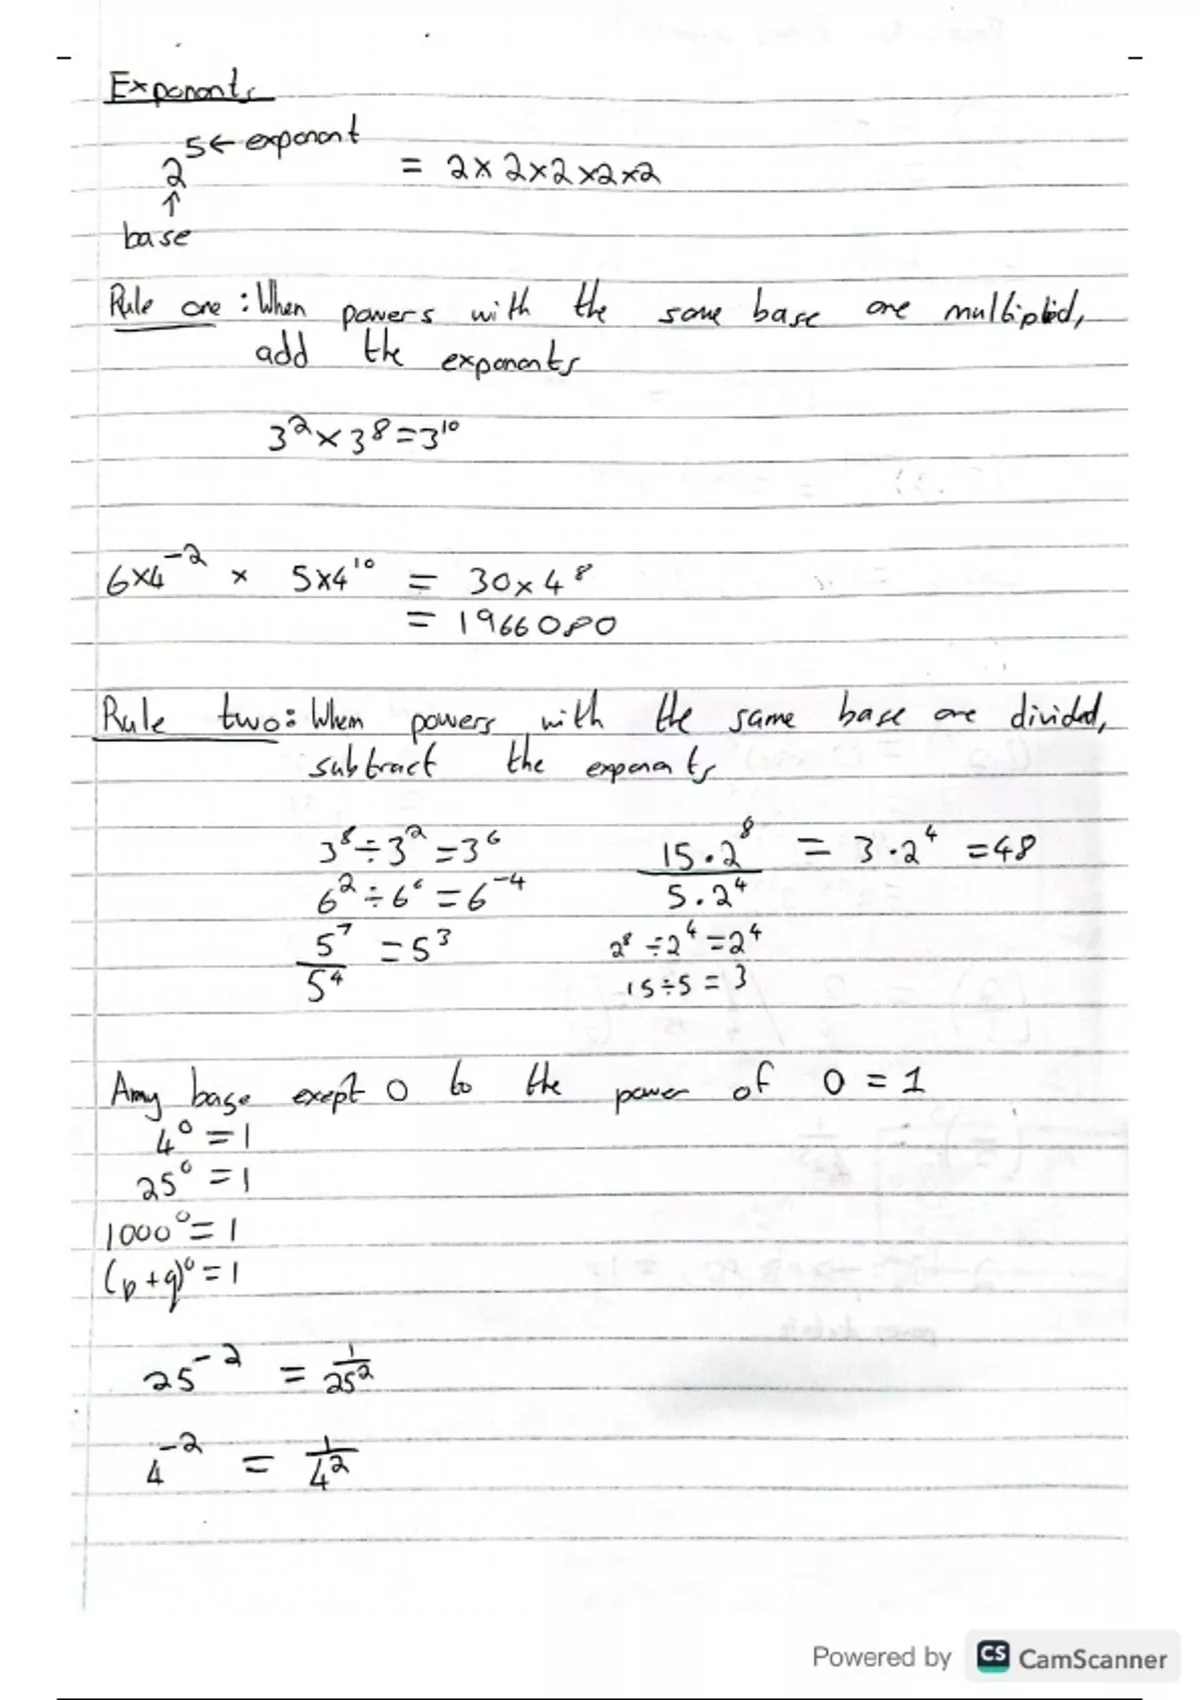 Exponents
2⁵ ← exponent = 2×2×2×2×2
↑
base
Rule one: When powers with the same base are multiplied,
add the exponents
3²×3⁸=3¹⁰
6×4⁻² × 5×4¹⁰ = 30×4⁸
= 1966080
Rule two: When powers with the same base are divided,
subtract the exponents
3⁸÷3²=3⁶
6²÷6⁶=6⁻⁴
5⁷/5⁴ =5³
15·2⁸/5·2⁴ = 3·2⁴ =48
2⁸÷2⁴=2⁴
15÷5=3
Any base exept 0 to the power of 0 = 1
4⁰=1
25⁰=1
1000⁰=1
(p+q)⁰=1
25⁻² = 1/25²
4⁻² = 1/4²
Powered by CS CamScanner